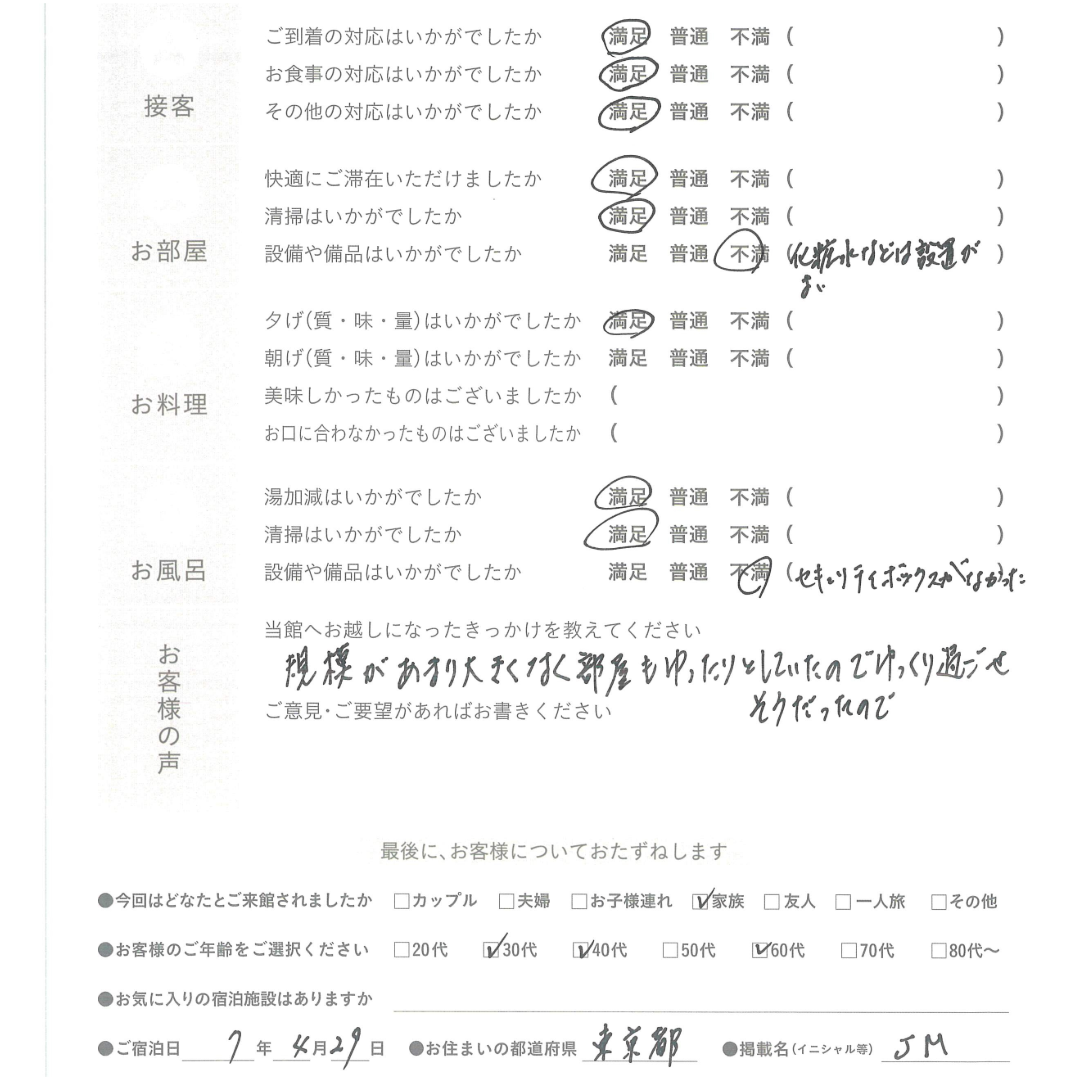 接客
ご到着の対応はいかがでしたか 満足 普通 不満 ( )
お食事の対応はいかがでしたか 満足 普通 不満 ( )
その他の対応はいかがでしたか 満足 普通 不満 ( )
お部屋
快適にご滞在いただけましたか 満足 普通 不満 ( )
清掃はいかがでしたか 満足 普通 不満 ( )
設備や備品はいかがでしたか 満足 普通 不満 (化粧水などは設置が )
ない
お料理
夕げ(質・味・量)はいかがでしたか 満足 普通 不満 ( )
朝げ(質・味・量)はいかがでしたか 満足 普通 不満 ( )
美味しかったものはございましたか ( )
お口に合わなかったものはございましたか ( )
お風呂
湯加減はいかがでしたか 満足 普通 不満 ( )
清掃はいかがでしたか 満足 普通 不満 ( )
設備や備品はいかがでしたか 満足 普通 不満 (セキュリティボックスがなかった
お客様の声
当館へお越しになったきっかけを教えてください
規模があまり大きくなく部屋もゆったりとしていたのでゆっくり過ごせ
そうだったので
ご意見・ご要望があればお書きください
最後に、お客様についておたずねします
●今回はどなたとご来館されましたか □カップル □夫婦 □お子様連れ ☑家族 □友人 □一人旅 □その他
●お客様のご年齢をご選択ください □20代 ☑30代 ☑40代 □50代 ☑60代 □70代 □80代〜
●お気に入りの宿泊施設はありますか
●ご宿泊日 7年 4月29日 ●お住まいの都道府県 東京都 ●掲載名(イニシャル等) JM